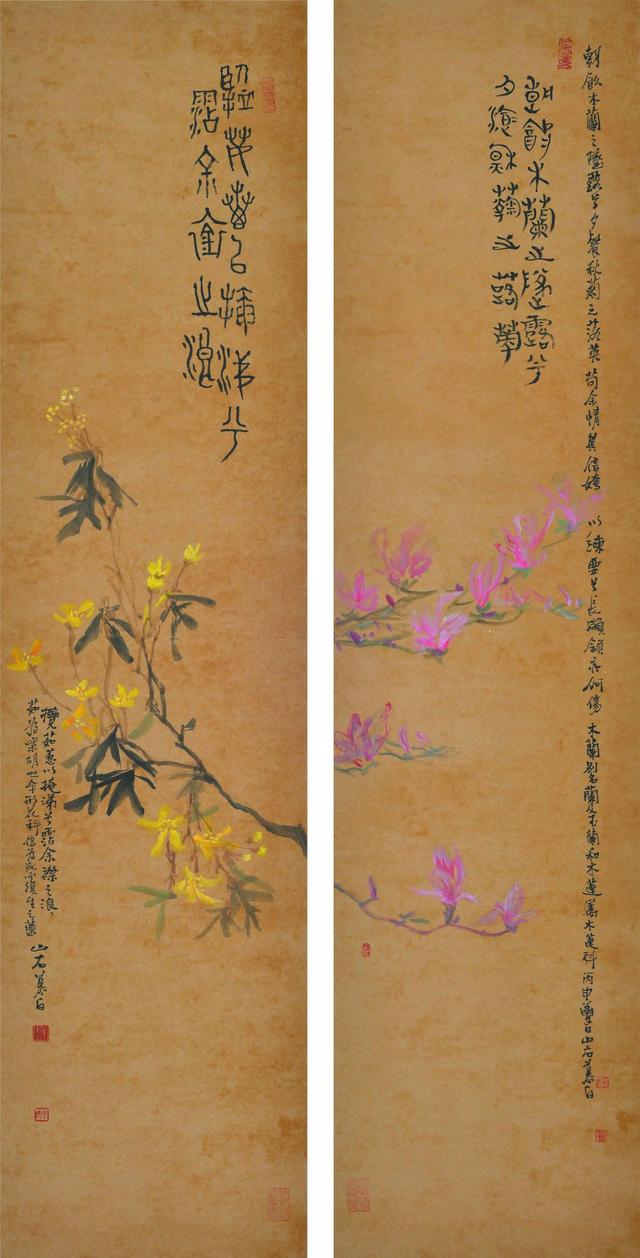 朝飲木蘭之墜露兮夕餐秋菊之落英苟余情其信姱以練要兮長顑頷亦何傷木蘭別名蘭及玉蘭和木蓮屬木蓮科丙申日山石慕白
朝飲木蘭之墜露兮
夕餐秋菊之落英
擥茹蕙以掩涕兮
霑余襟之浪
攬茹蕙以掩涕兮霑余襟之浪〻
茹為柴胡也傘形花科信为死而復生之藥
山石慕白